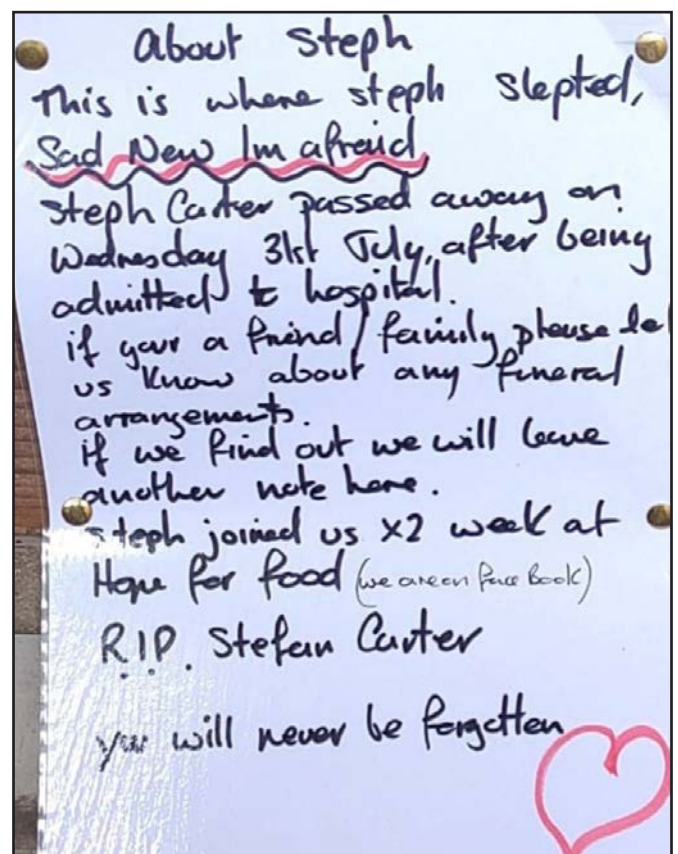 About Steph
This is where steph Slepted,
Sad New Im afraid
Steph Carter passed away on
Wednesday 31st July, after being
admitted to hospital.
if your a friend/family please let
us know about any funeral
arrangements.
if we find out we will leave
another note here.
Steph joined us x2 week at
Hope for food (we are on face Book)
R.I.P. Stefan Carter
you will never be forgotten